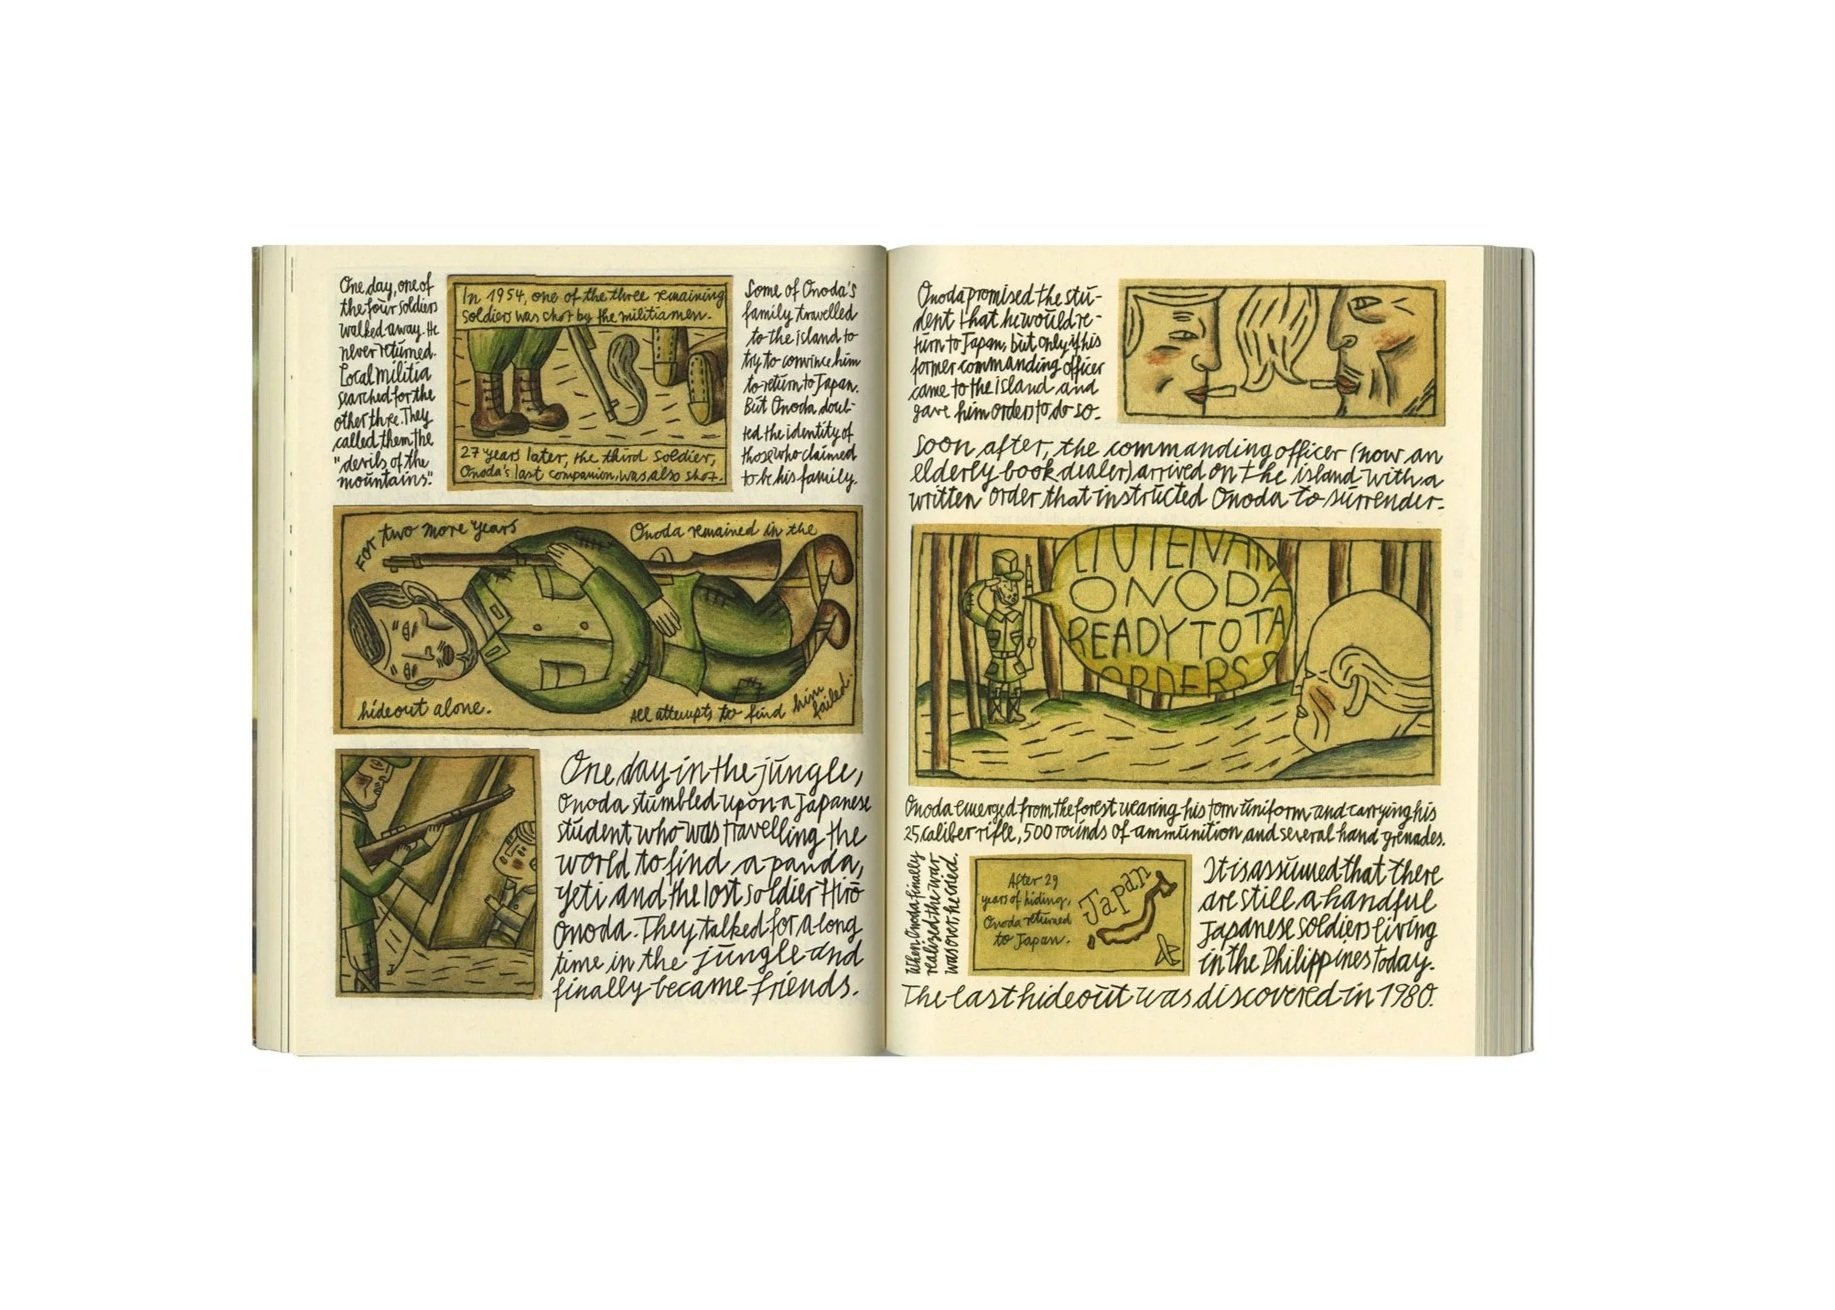 One day, one of
the four soldiers
walked away. He
never returned.
Local militia
searched for the
other three. They
called them the
"devils of the
mountains".
In 1954, one of the three remaining
soldiers was shot by the militiamen.
27 years later, the third soldier,
Onoda's last companion, was also shot.
Some of Onoda's
family travelled
to the island to
try to convince him
to return to Japan.
But Onoda doub-
ted the identity of
those who claimed
to be his family.
For two more years
Onoda remained in the
hideout alone.
All attempts to find him
failed.
One day in the jungle,
Onoda stumbled upon a Japanese
student who was travelling the
world to find a panda,
yeti and the lost soldier Hiro
Onoda. They talked for a long
time in the jungle and
finally became friends.
Onoda promised the stu-
dent that he would re-
turn to Japan, but only if his
former commanding officer
came to the island and
gave him orders to do so.
Soon after, the commanding officer (now an
elderly book dealer) arrived on the island with a
written order that instructed Onoda to surrender.
LIUTENAN
ONODA
READY TO TA
ORDERS
Onoda emerged from the forest wearing his torn uniform and carrying his
25 caliber rifle, 500 rounds of ammunition and several hand grenades.
When Onoda finally
realised the war
was over, he cried.
After 29
years of hiding,
Onoda returned
to Japan.
Japan
It is assumed that there
are still a handful
Japanese soldiers living
in the Philippines today.
The last hideout was discovered in 1980.